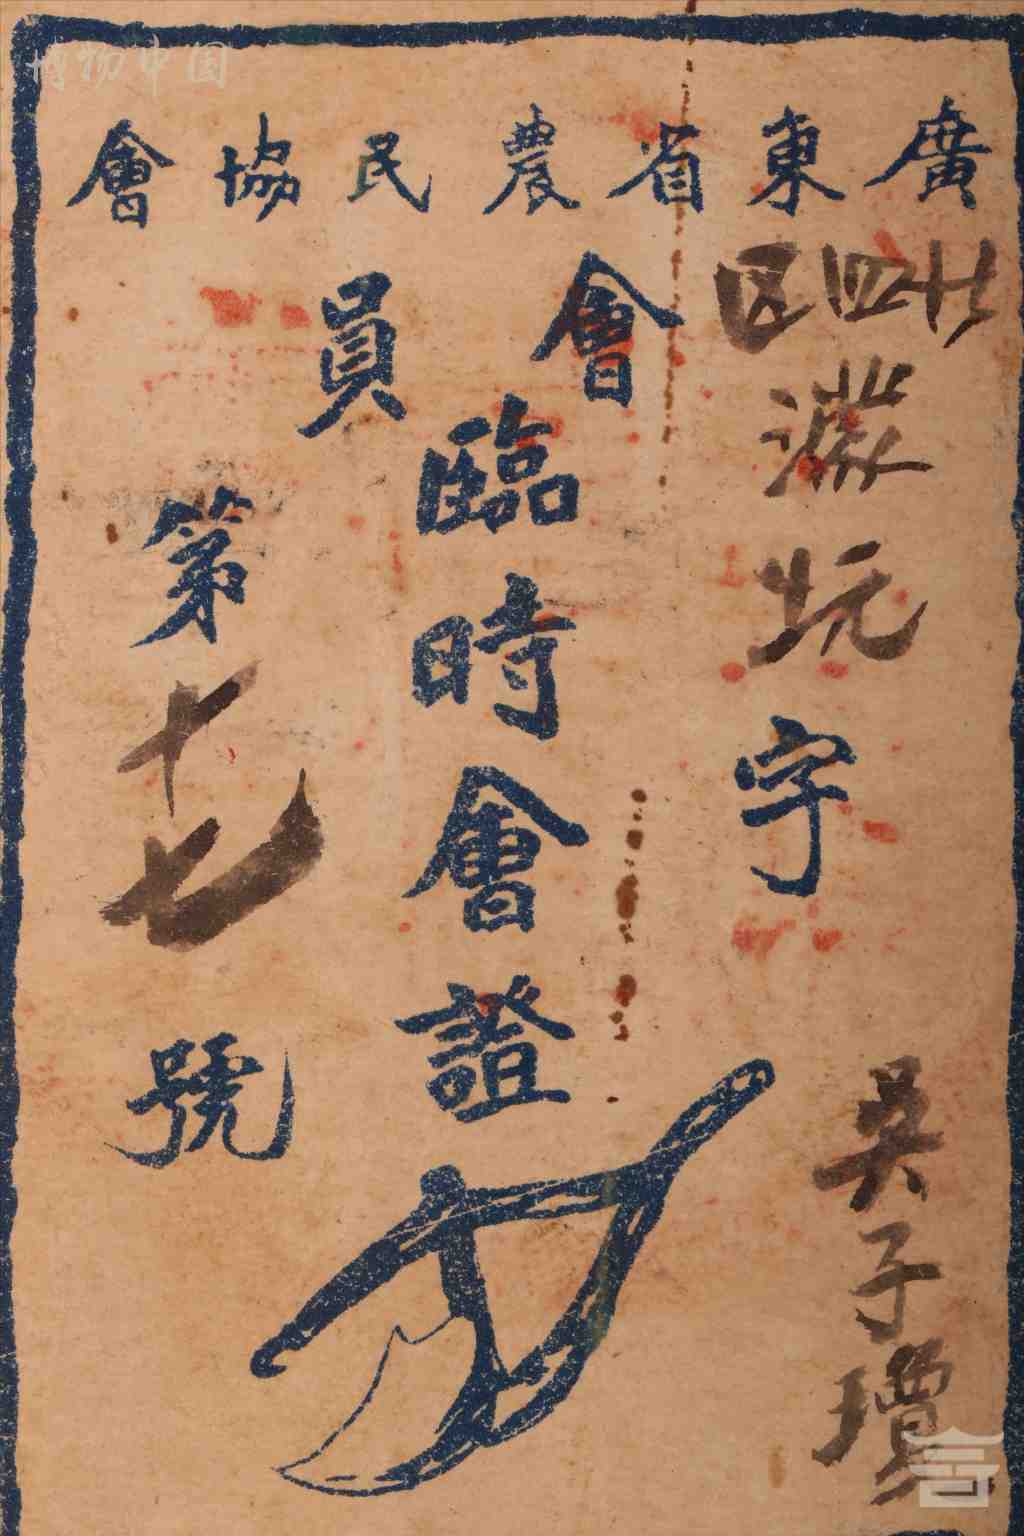 博物中国
廣東省農民協會
四区
坑字
吳子
會員
臨時會證
第十七號